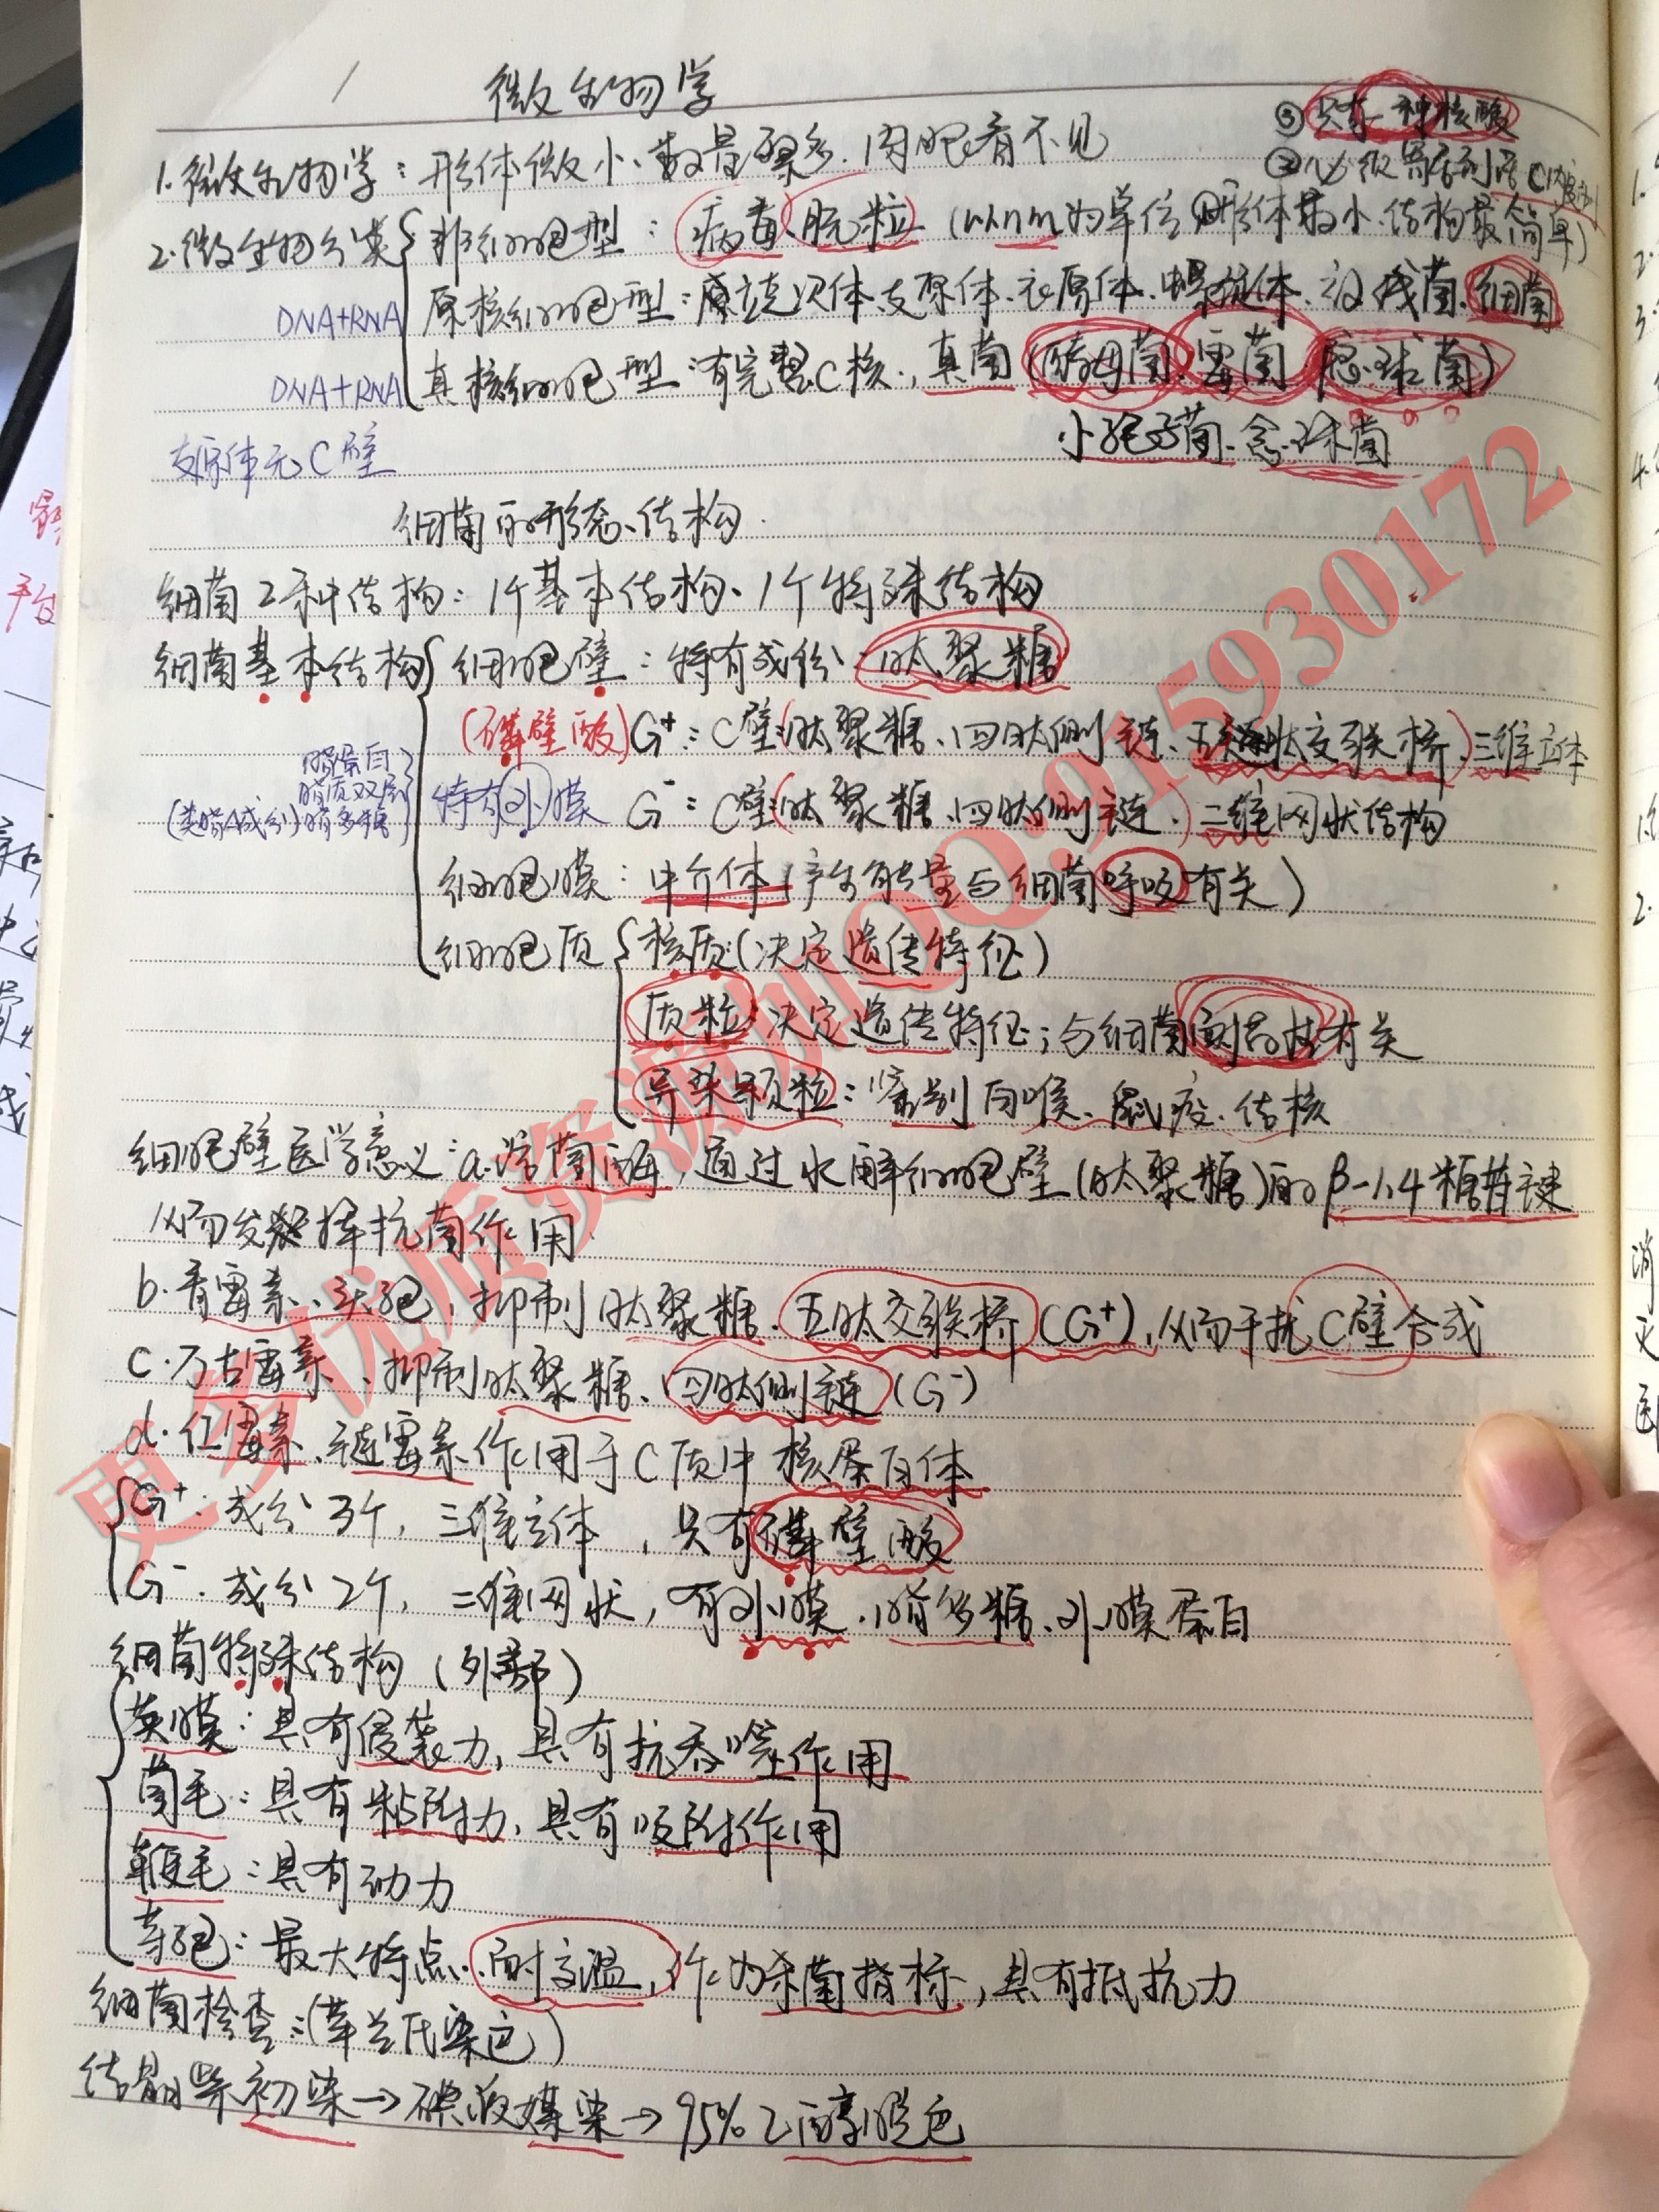 1
微生物学
③只有一种核酸
1.微生物学：形体微小、数量繁多、肉眼看不见
②必须寄居到活C内
2.微生物分类 非细胞型：病毒、朊粒（以nm为单位①形体最小、结构最简单）
DNA+RNA 原核细胞型：原立克次体、支原体、衣原体、螺旋体、放线菌、细菌
DNA+RNA 真核细胞型：有完整C核，真菌（酵母菌、霉菌
小孢子菌、念珠菌
支原体无C壁
细菌的形态、结构
细菌2种结构：1个基本结构、1个特殊结构
细菌基本结构 细胞壁：特有成分：肽聚糖
（磷壁酸）G⁺：C壁（肽聚糖、四肽侧链、五肽交联桥）三维立体
脂蛋白
脂质双层
（类脂A成分）脂多糖
特有外膜 G⁻：C壁（肽聚糖、四肽侧链）二维网状结构
细胞膜：中介体（产生能量与细菌呼吸有关）
细胞质 核质（决定遗传特征）
质粒：决定遗传特征；与细菌耐药性有关
异染颗粒：鉴别白喉、鼠疫、结核
细胞壁医学意义：a.溶菌酶，通过水解细胞壁（肽聚糖）的β-1,4糖苷键
从而发挥抗菌作用
b.青霉素、头孢，抑制肽聚糖、五肽交联桥（G⁺），从而干扰C壁合成
c.万古霉素、抑制肽聚糖、四肽侧链（G⁻）
d.红霉素、链霉素作用于C质中核蛋白体
G⁺：成分3个，三维立体，只有磷壁酸
G⁻：成分2个，二维网状，有外膜、脂多糖、外膜蛋白
细菌特殊结构（外部）
荚膜：具有侵袭力，具有抗吞噬作用
菌毛：具有粘附力，具有吸附作用
鞭毛：具有动力
芽孢：最大特点：耐高温，作为杀菌指标，具有抵抗力
细菌检查：（革兰氏染色）
结晶紫初染→碘液媒染→95%乙醇脱色
更多优质资源加QQ:915930172